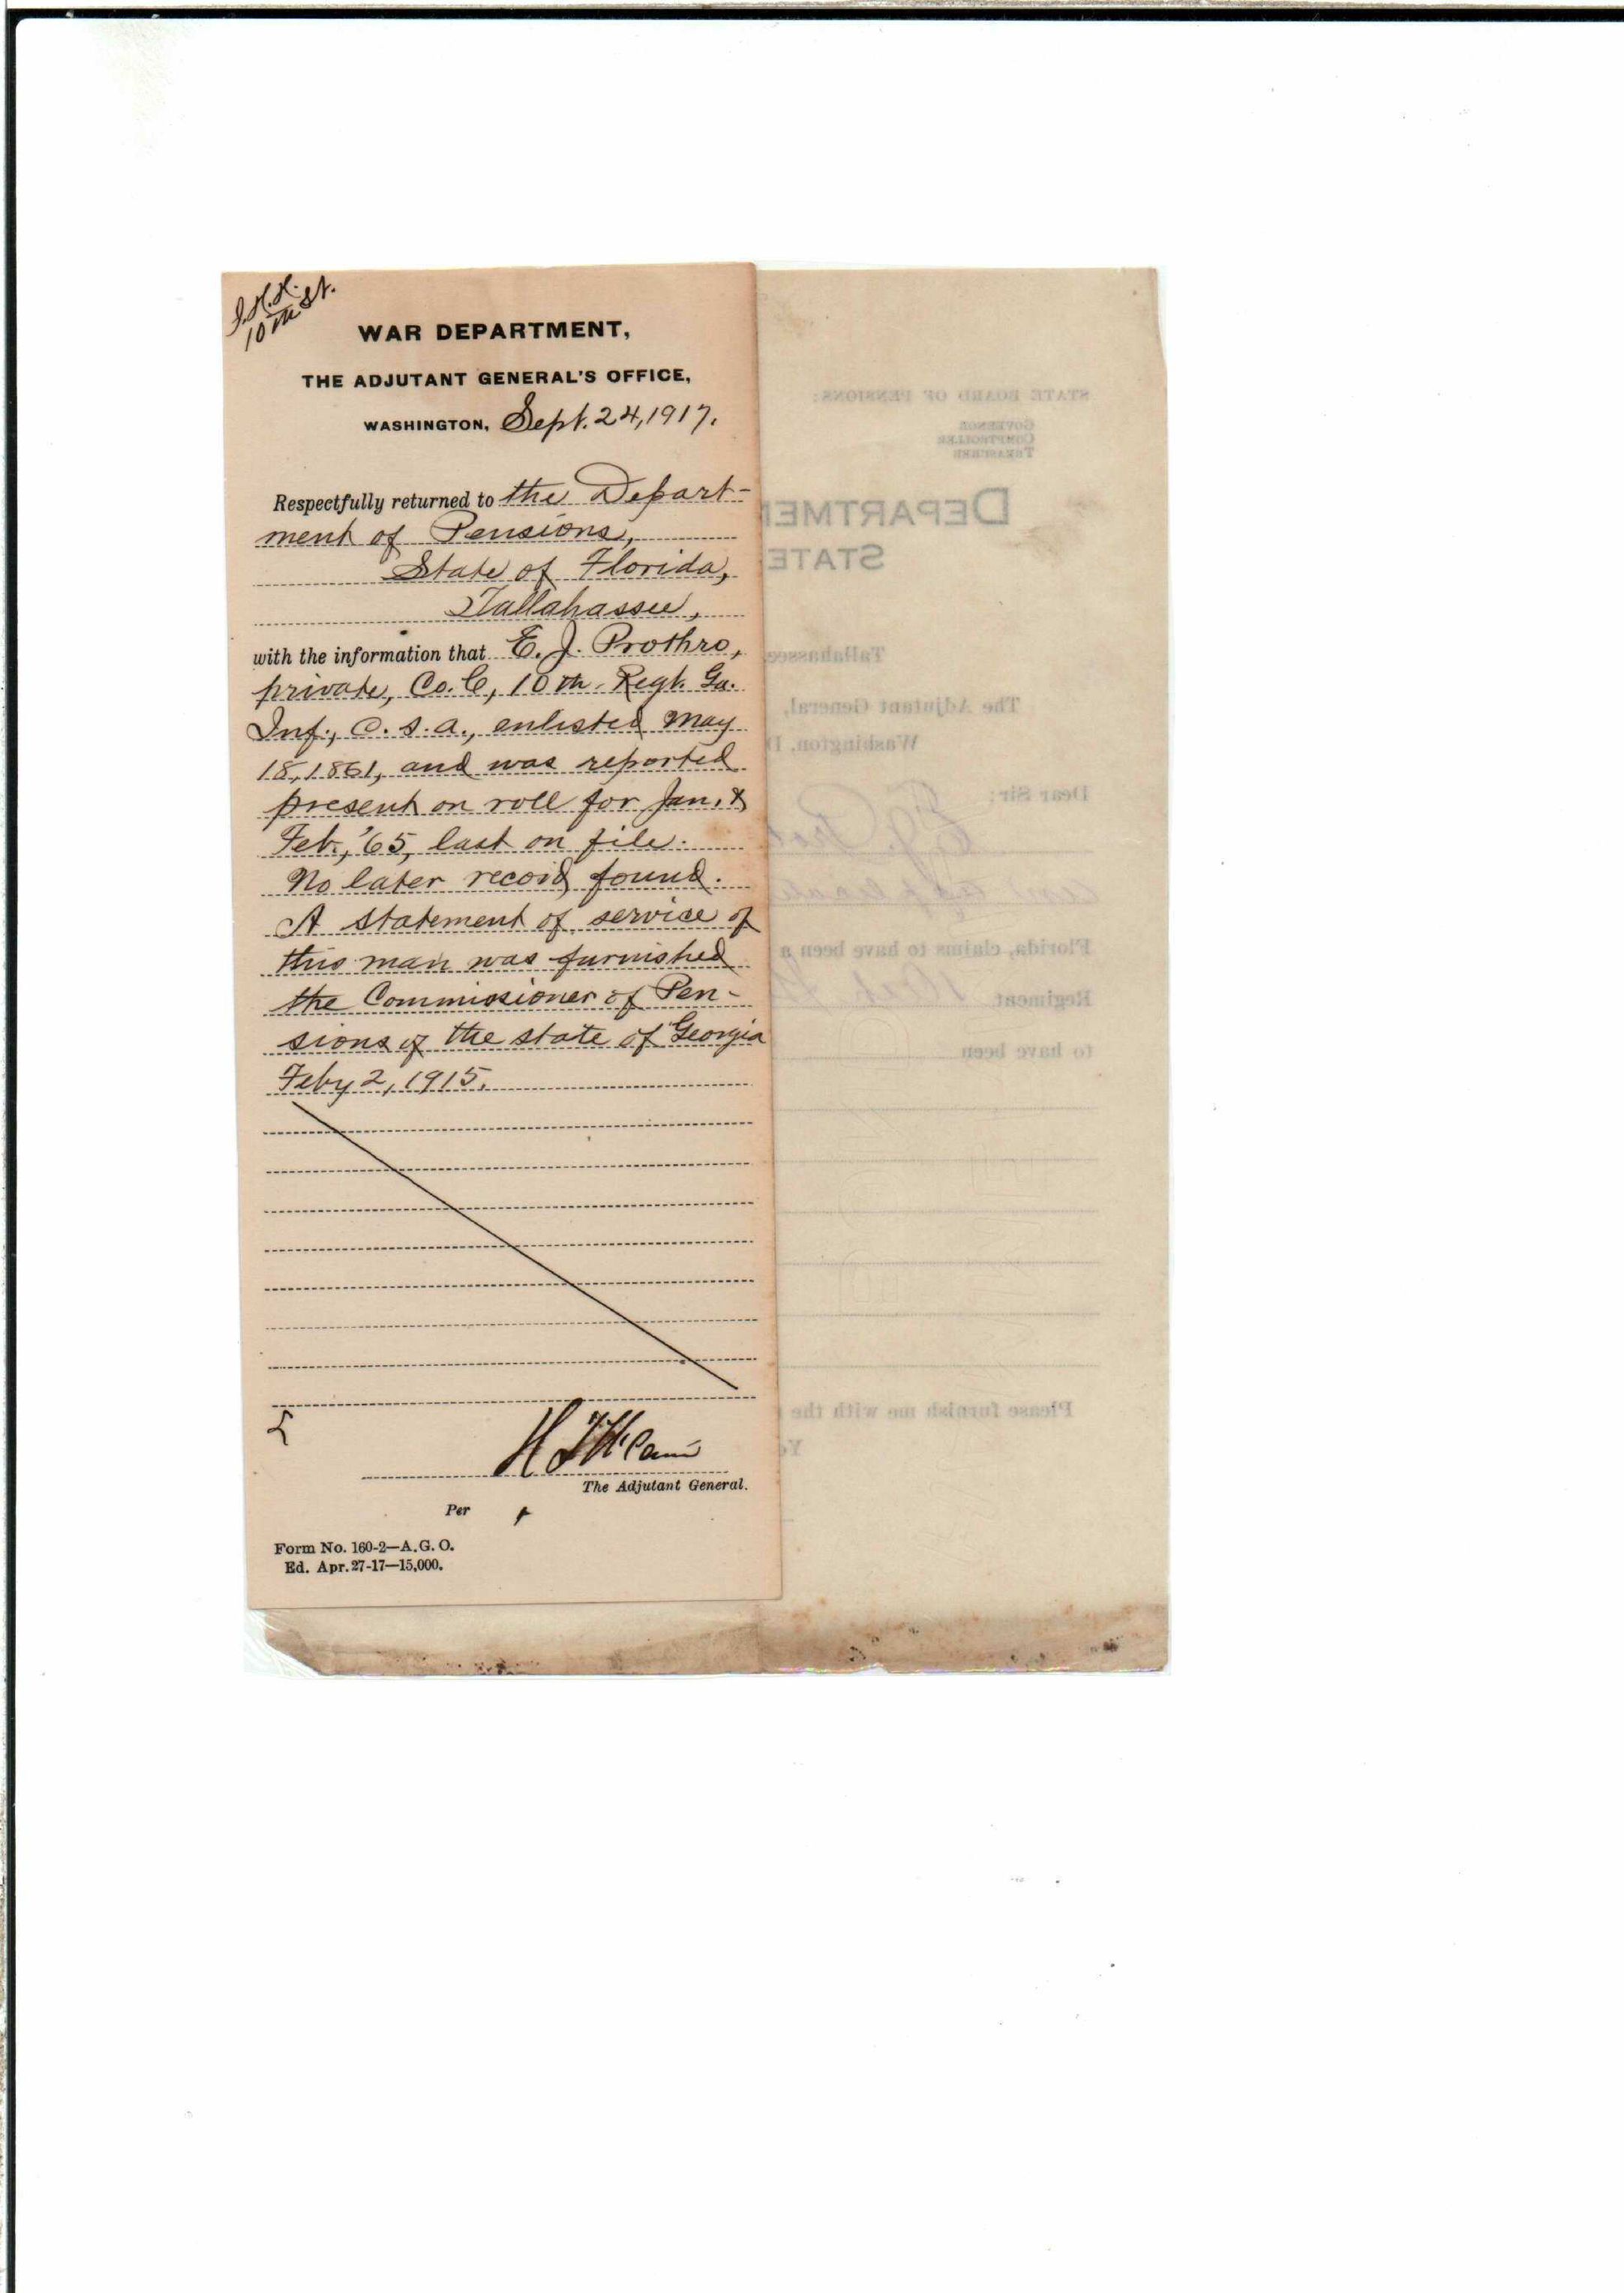 J.H.H.
10th St.
WAR DEPARTMENT,
THE ADJUTANT GENERAL'S OFFICE,
WASHINGTON, Sept. 24, 1917.
Respectfully returned to the Depart-
ment of Pensions,
State of Florida,
Tallahassee,
with the information that E. J. Prothro,
private, Co. C, 10th Regt. Ga.
Inf., C. S. A., enlisted May
18, 1861, and was reported
present on roll for Jan. &
Feb., '65, last on file.
No later record found.
A statement of service of
this man was furnished
the Commissioner of Pen-
sions of the state of Georgia
Feby 2, 1915.
The Adjutant General.
Per
Form No. 160-2—A.G.O.
Ed. Apr. 27-17—15,000.
STATE BOARD OF PENSIONS:
GOVERNOR
COMPTROLLER
TREASURER
DEPARTMEN
STATE
Tallahassee,
The Adjutant General,
Washington, D
Dear Sir:
E. J. Prot
Florida, claims to have been a
Regiment 10th
to have been
Please furnish me with the